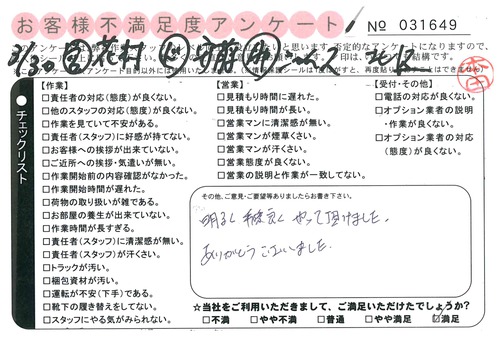 お客様不満足度アンケート
No 031649
チェックリスト
【作業】
□責任者の対応(態度)が良くない。
□他のスタッフの対応(態度)が良くない。
□作業を見ていて不安がある。
□責任者(スタッフ)に好感が持てない。
□お客様への挨拶が出来ていない。
□ご近所への挨拶・気遣いが無い。
□作業開始前の内容確認がなかった。
□作業開始時間が遅れた。
□荷物の取り扱いが雑である。
□お部屋の養生が出来ていない。
□作業時間が長すぎる。
□責任者(スタッフ)に清潔感が無い。
□責任者(スタッフ)が汗くさい。
□トラックが汚い。
□梱包資材が汚い。
□運転が不安(下手)である。
□靴下の履き替えをしてない。
□スタッフにやる気がみられない。
【営業】
□見積もり時間に遅れた。
□見積もり時間が長い。
□営業マンに清潔感が無い。
□営業マンが煙草くさい。
□営業マンが汗くさい。
□営業態度が良くない。
□営業の説明と作業が一致してない。
【受付・その他】
□電話の対応が良くない。
□オプション業者の説明
・作業が良くない。
□オプション業者の対応
(態度)が良くない。
その他、ご意見・ご要望等ありましたらお書き下さい。
明るく手際良くやって頂けました。
ありがとうございました。
☆当社をご利用いただきまして、ご満足いただけたでしょうか?
□不満 □やや不満 □普通 □やや満足 □満足